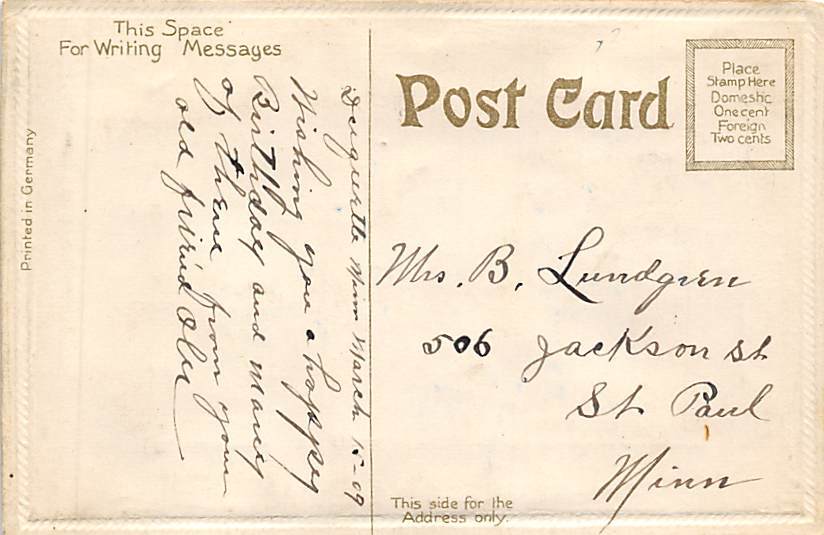 This Space
For Writing Messages
Printed in Germany
Duquette Minn March 15-09
Wishing you a happy
Birthday and many
of them from your
old friend
Post Card
Place
Stamp Here
Domestic
One cent
Foreign
Two cents
Mrs. B. Lundgren
506 Jackson St
St Paul
Minn
This side for the
Address only.